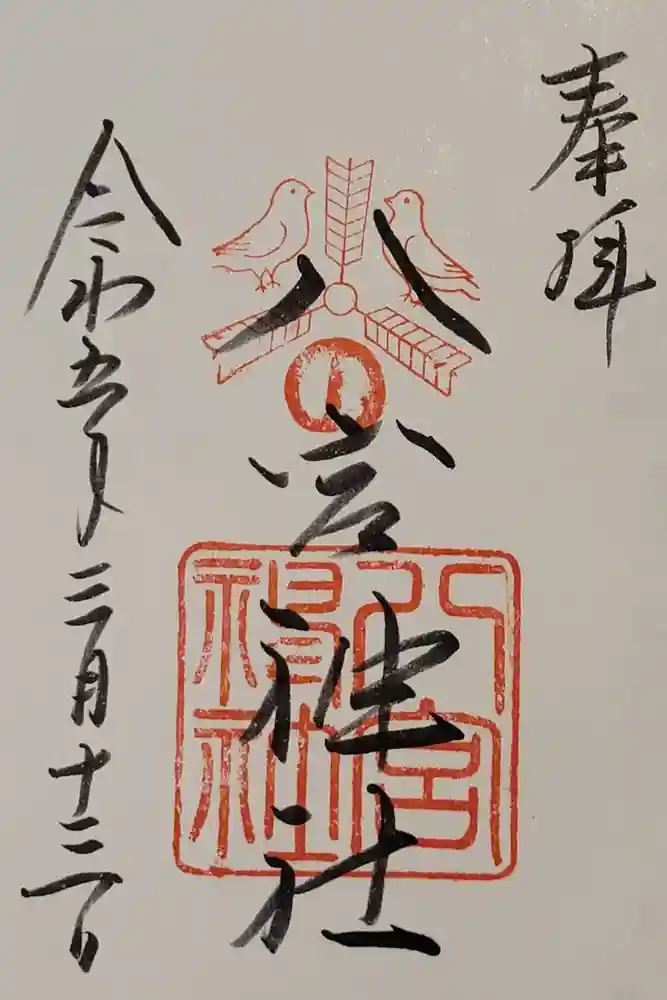 奉拝
八宮神社
八宮
神社
令和五年三月十二日